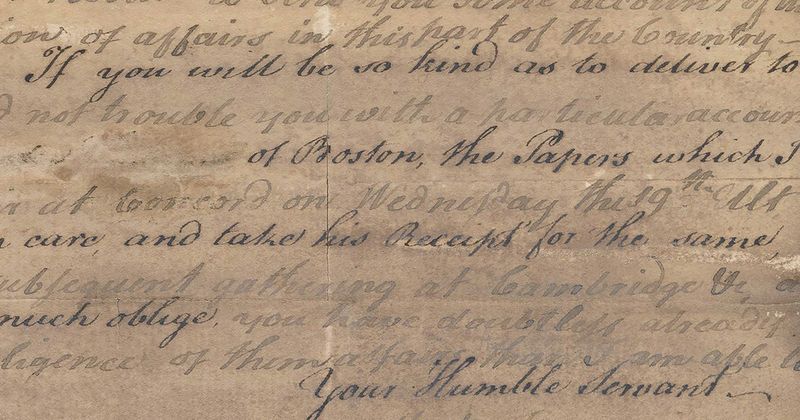 to send you some account of
ion of affairs in this part of the Country —
If you will be so kind as to deliver to
not trouble you with a particular account
of Boston, the Papers which I
at Concord on Wednesday the 19th. Ult
care, and take his Receipt for the same,
subsequent gathering at Cambridge &c, a
much oblige, you have doubtless already
ligence of them affairs than I am able to
Your Humble Servant —